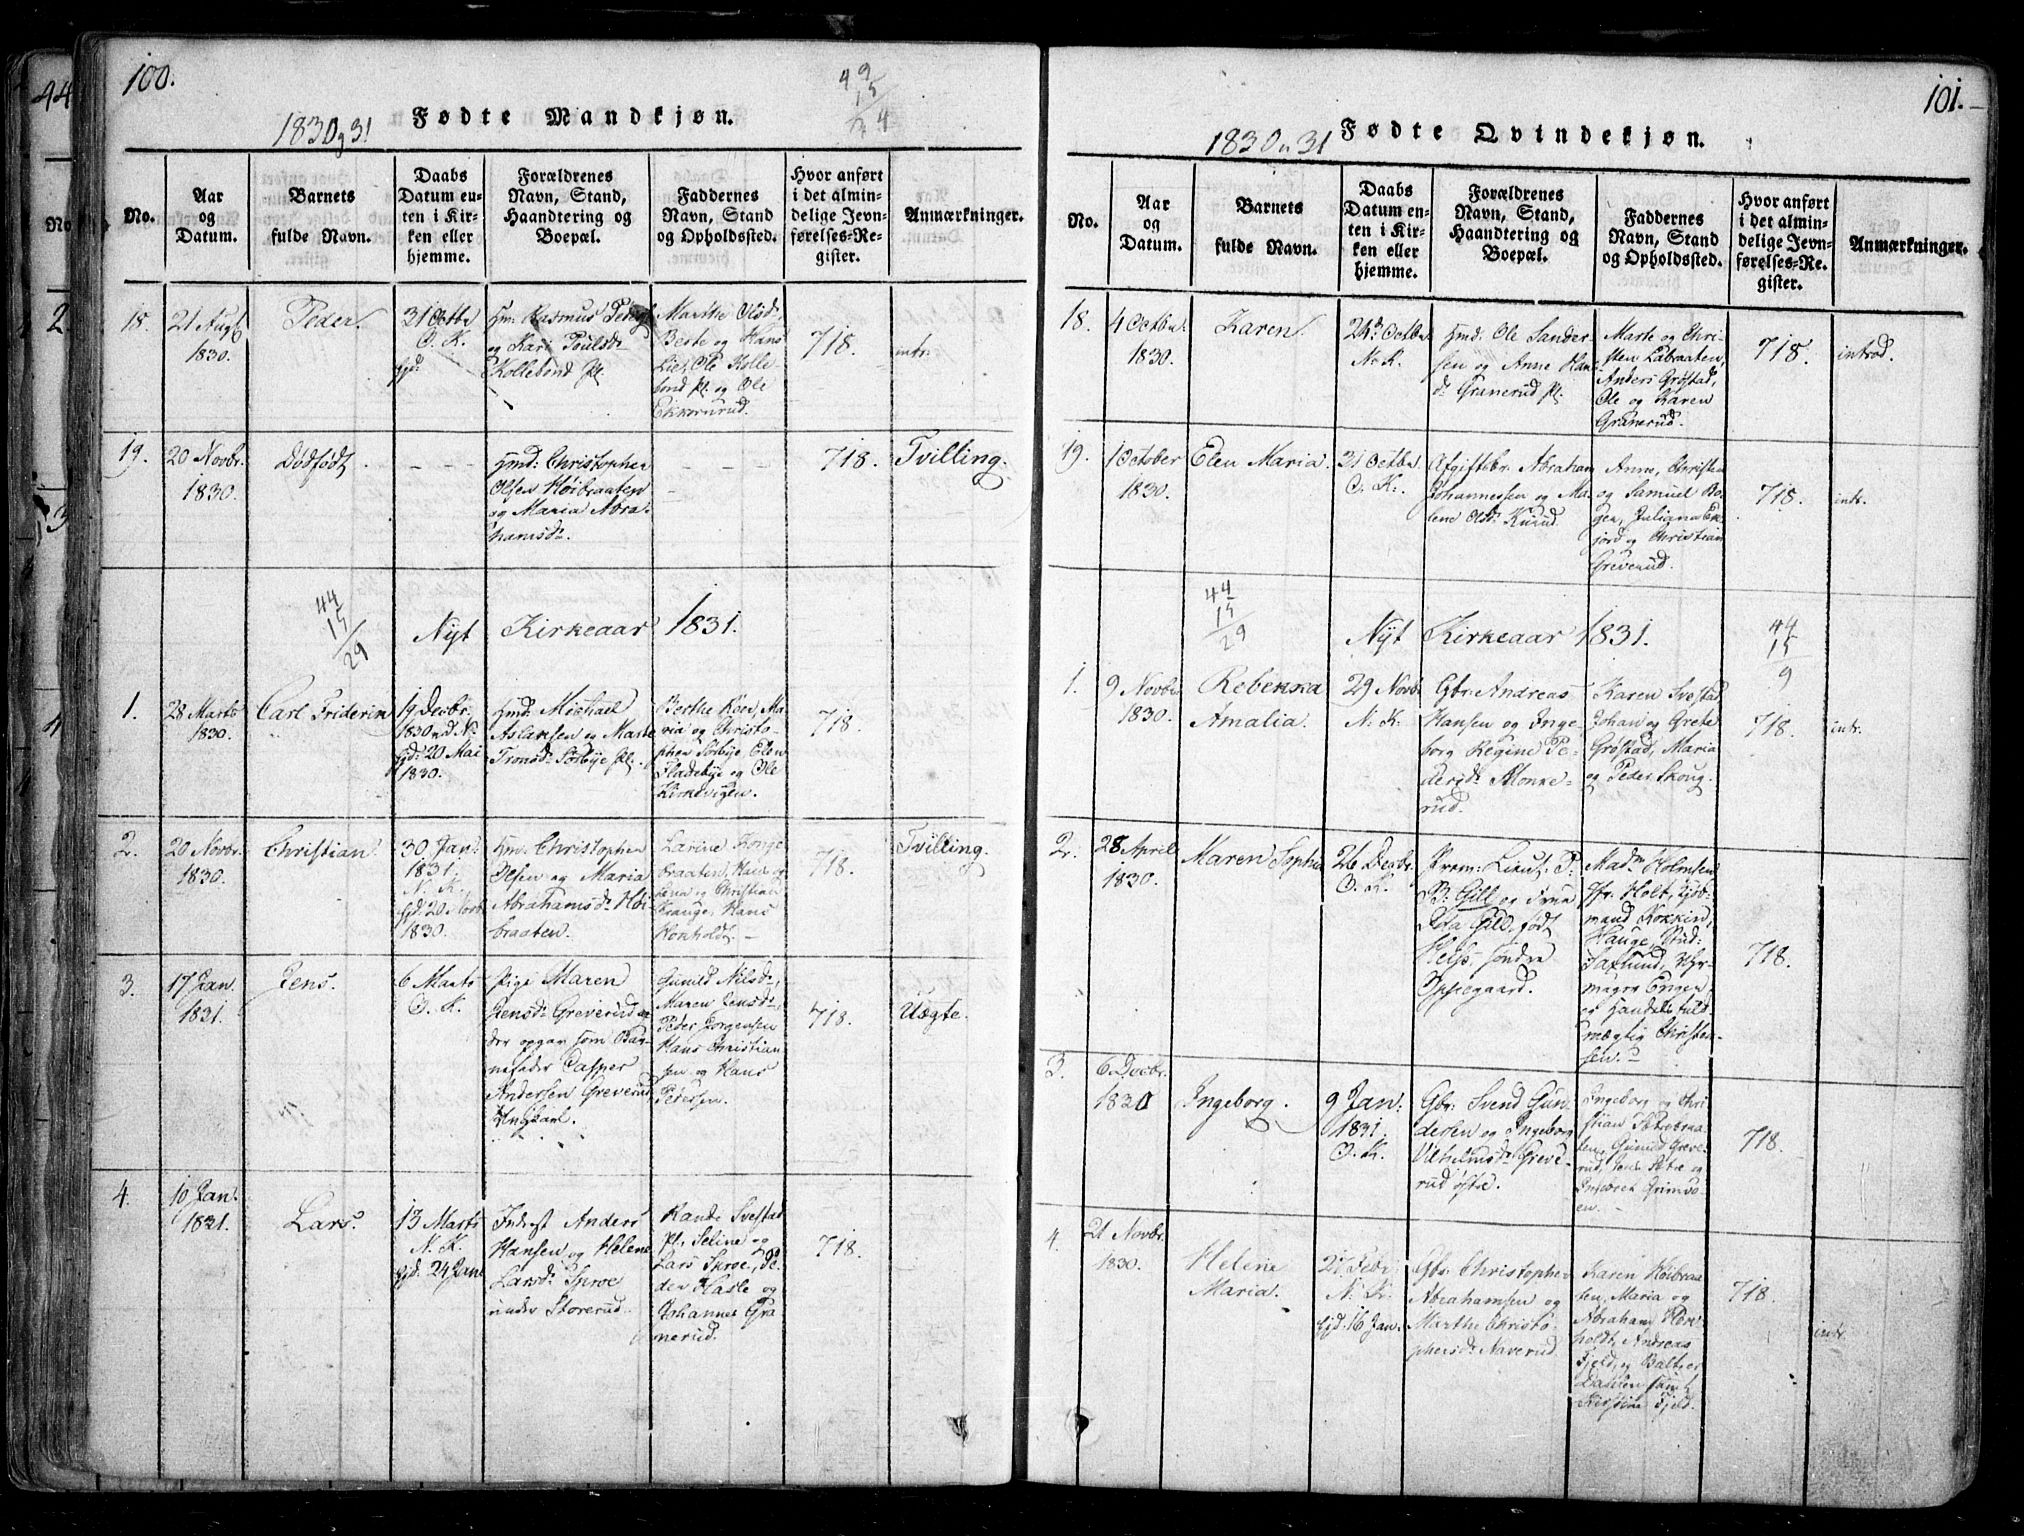 100.
1830 og 31
Fødte Mandkjøn.
No.
Aar
og
Datum.
Barnets
fulde Navn.
Daabs
Datum en-
ten i Kir-
ken eller
hjemme.
Forældrenes
Navn, Stand,
Haandtering og
Boepæl.
Faddernes
Navn, Stand
og Opholdssted.
Hvor anført
i det almin-
delige Jevn-
førelses-Re-
gister.
Anmærkninger.
18.
21 Aug
1830.
Peder.
31 Octbr
O. K.
Hm: Rasmus Peders
og Kari Pouls
Kollebond pl.
Marthe Olsd,
Berte og Hans
Lie, Ole Kolle-
bond pl. og Ole
Ekkornrud.
718.
intr.
19.
20 Novbr.
1830.
Dødfødt
Hmd: Christopher
Olsen Høibraaten
og Maria Abra-
hamsd.
718.
Tvilling.
44
15
29
Nyt Kirkeaar 1831.
1.
28 Marts
1830.
Carl Friderin
19 Decbr.
1830 N. K.
hjd: 20 Mai
1830.
Hmd: Michael
Aslaksen og Marte
Tronsd: Sørbye pl.
Berthe Roer, Ma-
ria og Christo-
phen Sørbye, Elen
Fladebye og Ole
Kirkevigen.
718.
2.
20 Novbr.
1830.
Christian.
30 Jan:
1831.
N. K.
hjd: 20 Novb
1830.
Hmd: Christopher
Olsen og Maria
Abrahamsd. Høi-
braaten.
Larine Konge-
braaten, Hans og
og Christian
Krange, Hans
Hornholdt.
718.
Tvilling.
3.
17 Jan.
1831.
Jens.
6 Marts
O. K.
Pige Maren
Jensd. Greverud
der opgav som Bar-
nefader Casper
Andersen Greverud,
Ungkarl.
Gunild Nilsd:,
Maren Jensd:,
Peder Jørgensen
Hans Christian-
sen og Hans
Pedersen.
718.
Uægte.
4.
10 Jan.
1831.
Lars.
13 Marts
N. K.
hjd: 24 Jan
Inderst Anders
Hansen og Helene
Larsd: Sproe
under Storerud.
Rande Svestad
pl., Seline og
Lars Sproe, Pe-
der Hasle og
Johannes Gra-
nerud.
718.
101.
1830 og 31
Fødte Qvindekjøn.
No.
Aar
og
Datum.
Barnets
fulde Navn.
Daabs
Datum en-
ten i Kir-
ken eller
hjemme.
Forældrenes
Navn, Stand,
Haandtering og
Boepæl.
Faddernes
Navn, Stand
og Opholdssted.
Hvor anført
i det almin-
delige Jevn-
førelses-Re-
gister.
Anmærkninger.
18.
4 Octbr.
1830.
Karen.
24 Octbr
N. K.
Hmd: Ole Sander-
sen og Anne Han-
d. Granerud pl.
Marte og Chri-
sten Labraaten,
Anders Grøstad,
Ole og Karen
Granerud.
718.
introd.
19.
1 October
1830.
Elen Maria.
31 Octbr
O. K.
Afgiftsbr. Abraham
Johannessen og Ma-
lene Olsd: Kurud.
Anne, Christen
og Samuel Bo-
gen, Juliana Ek-
jord og Christian
Greverud.
718.
intr.
44
15
29
Nyt Kirkeaar 1831.
44
15
9
1.
9 Novbr
1830.
Rebekka
Amalia.
29 Novbr
N. K.
Gbr: Andreas
Hansen og Inge-
borg Regine Pe-
dersd: Monke-
rud.
Karen Svestad
Johan og Grete
Grøstad, Maria
og Peder Skoug.
718.
intr.
2.
28 April
1830.
Maren Sophie
26 Decbr.
O. K.
Prem: Lieut: P.
B: Gill og Frue
Ida Gill, født
Hels, søndre
Oppegaard.
Madm Holmsen
Fr. Holt,
mand Kokkin,
Hauge, Stud:
Taxlund, Uhr-
mager Engen,
og Handelsfuld-
mægtig Christen-
sen.
718.
3.
6 Decbr.
1830
Ingeborg.
9 Jan:
1831.
O. K.
Gbr: Svend Gun-
dersen og Ingeborg
Vilhelmsd: Greve-
rud østre.
Ingeborg og Chri-
stian
Gunild Greve-
rud,
og
Grims-
en.
718.
4.
21 Novbr.
1830.
Helene
Maria.
27 Febr
N. K.
hjd: 16 Jan.
Gbr. Christopher
Abrahamsen og
Marthe Christo-
phersd: Naverud.
Karen Høibraa-
ten, Maria og
Abraham Horn-
holdt, Andreas
Fjeld, og Baltzer
Dahlen samt
Kirstine Fjeld.
718.
intr.